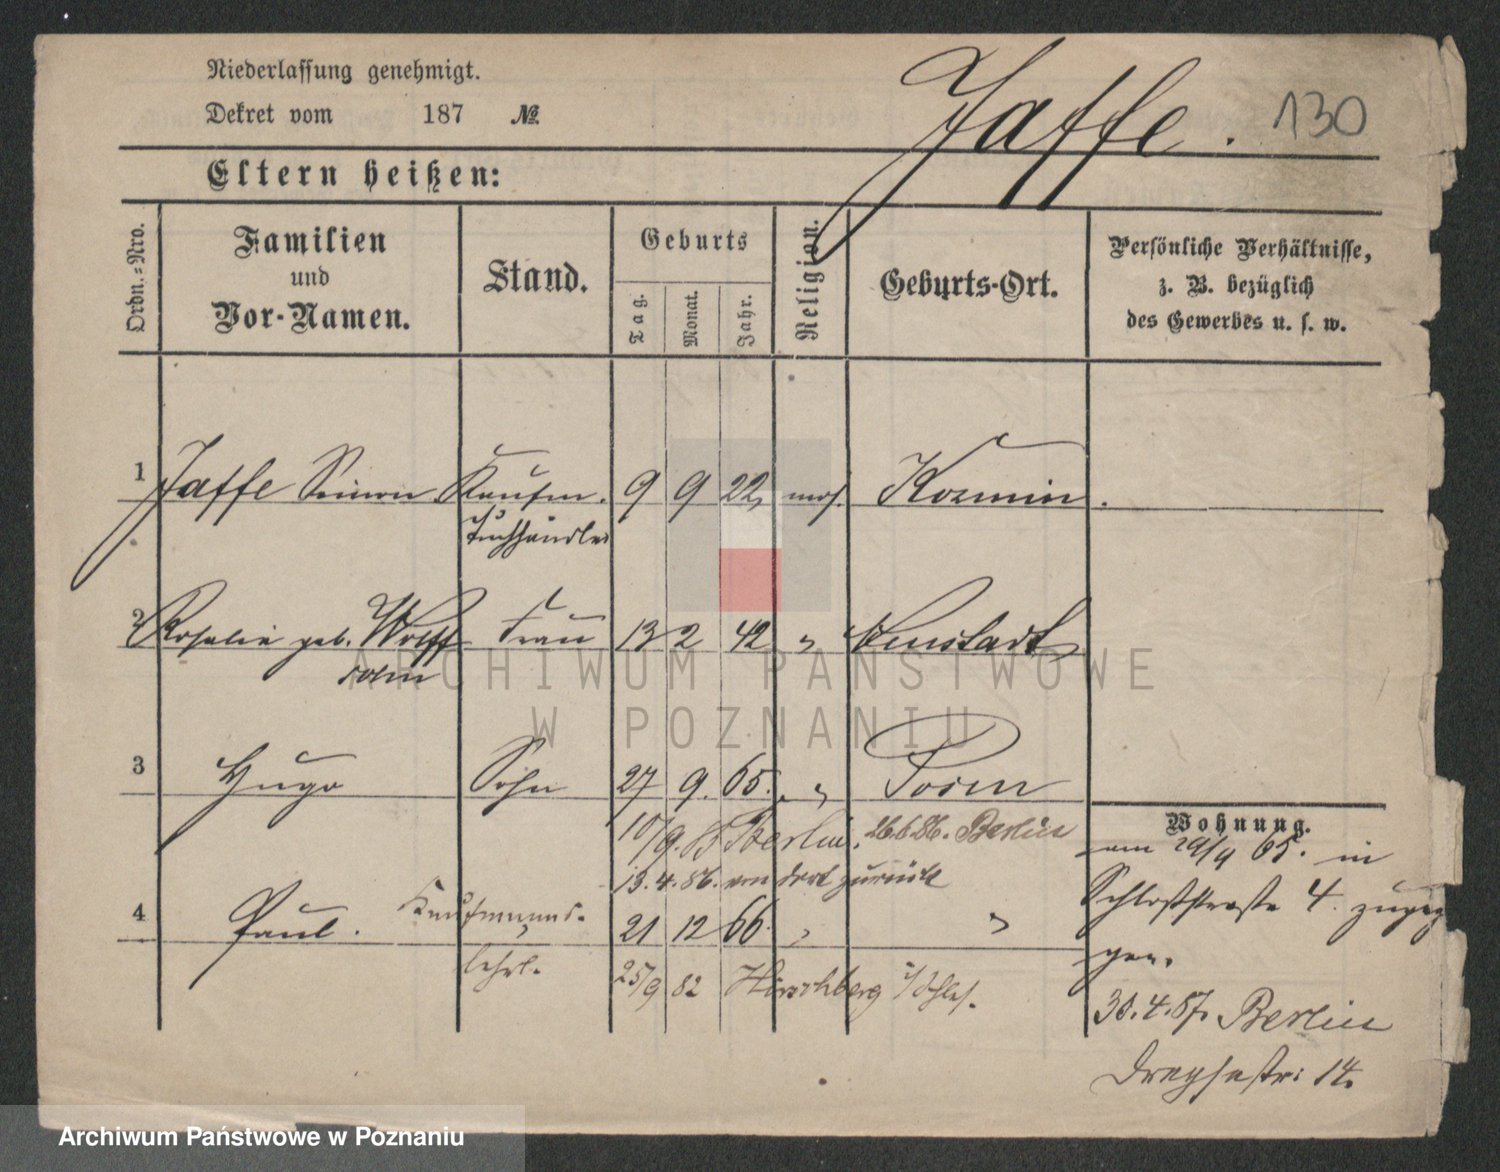 Niederlassung genehmigt.
Dekret vom 187 №
Jaffe. 130
Eltern heißen:
Ordn.-Nro.
Familien und Vor-Namen.
Stand.
Geburts
Tag. Monat. Jahr.
Religion.
Geburts-Ort.
Persönliche Verhältnisse, z. B. bezüglich des Gewerbes u. s. w.
1 Jaffe Simon Kaufm. 9 9 22 mos. Kozmin.
Tuchhändler
2 Rosalie geb. Wolff Frau 13 2 42 " Neustadt
sohn
3 Hugo Sohn 27 9. 65. " Posen
10/9. 85 Berlin. 26.6.86. Berlin
13. 4. 86. von dort zurück
4 Paul. Kaufmanns- 21 12 66. " "
lehrl. 25/9 82 Hirschberg i/Schles.
Wohnung.
am 29/9 65. in
Schloßstraße 4. zugezo
gen.
30. 4. 87. Berlin
14.
ARCHIWUM PAŃSTWOWE
W POZNANIU
Archiwum Państwowe w Poznaniu